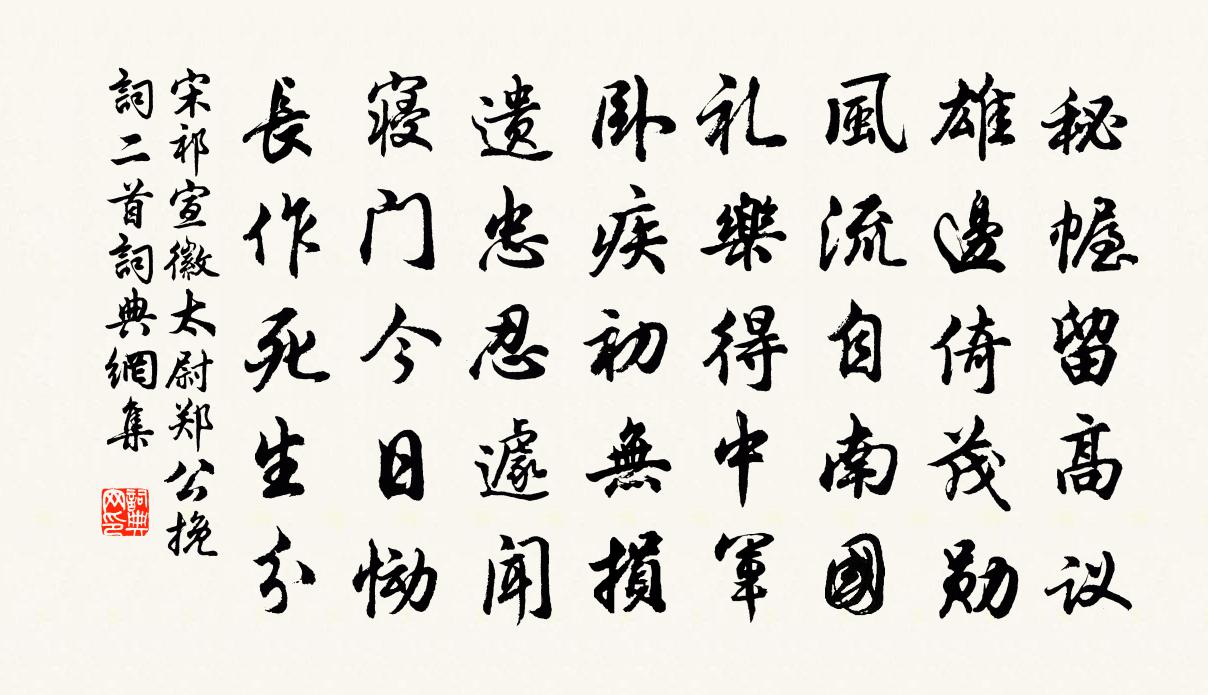 秘幄留高议
雄邊倚茂勋
風流自南國
礼樂得中軍
卧疾初無損
遗忠忍遽闻
寝门今日恸
長作死生分
宋祁宣徽太尉郑公挽
詞二首詞典網集
詞典
网印